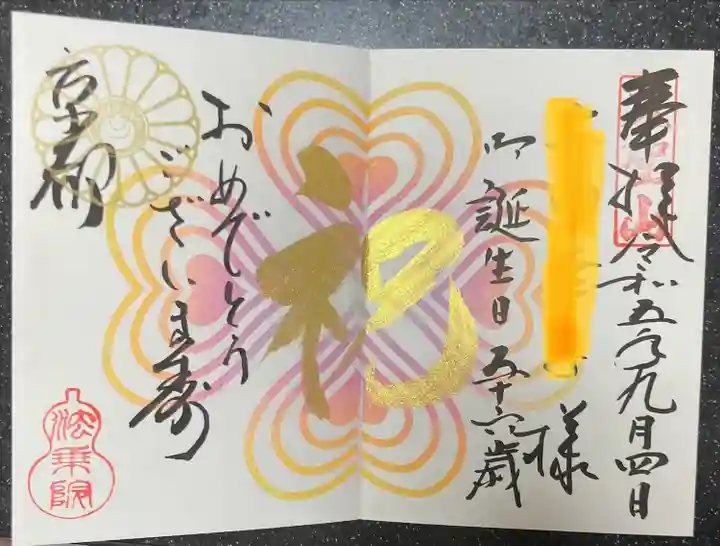 奉拝 令和五年九月四日
様
御誕生日 五十六歳
祝
おめでとう
ございま寿
京都
法乗院